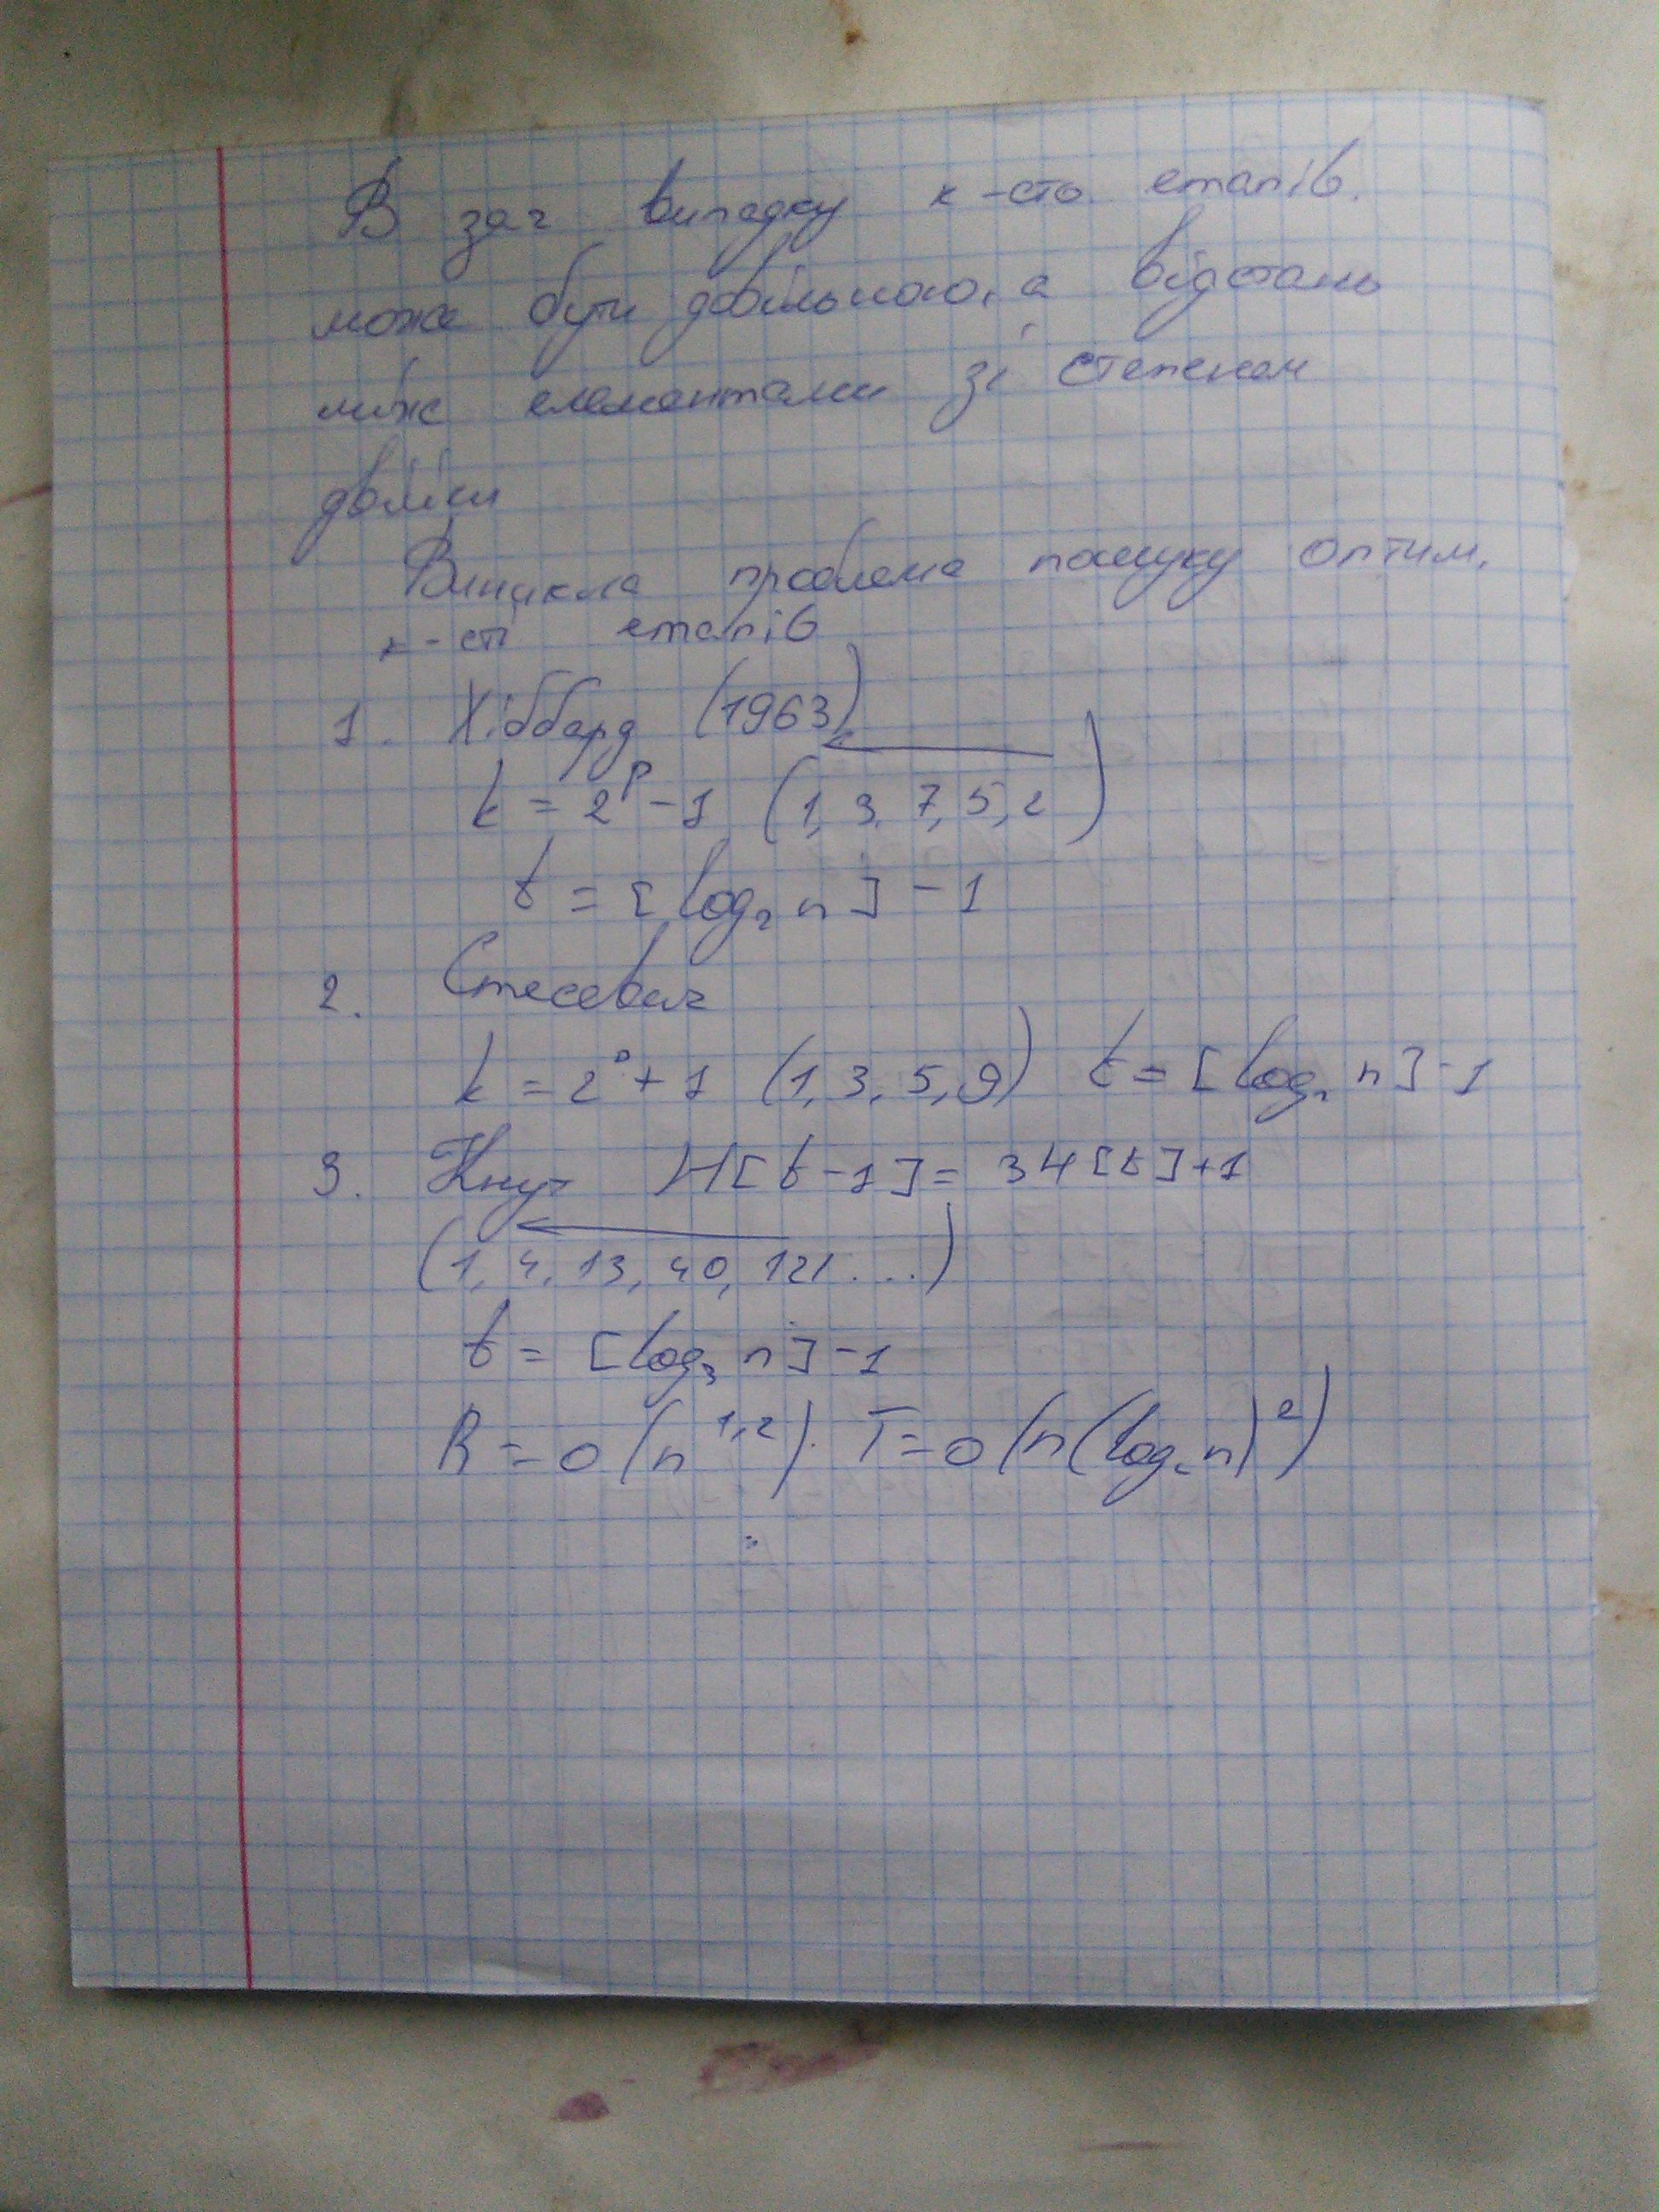 В заг випадку к-сто етапів.
може бути довільною, а відстань
між елементами зі степенем
двійки
Виникла проблема пошуку оптим.
к-сті етапів
1. Хіббард (1963)
k = 2^p - 1 (1, 3, 7, 5, 2)
t = [log₂ n] - 1
2. Стесевич
k = 2^p + 1 (1, 3, 5, 9) t = [log₂ n] - 1
3. Кнут H[t-1] = 3H[t]+1
(1, 4, 13, 40, 121...)
t = [log₃ n] - 1
R = O(n^1,2). T = O(n(log₂ n)^2)